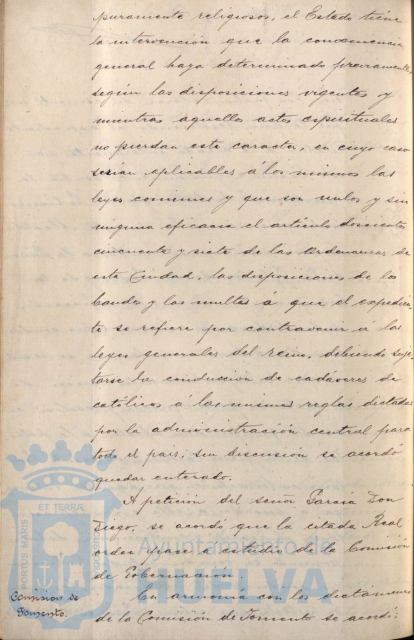 puramente religiosos, el Estado tiene
la intervención que la conveniencia
general haya determinado previamente
según las disposiciones vigentes y
mientras aquellos actos espirituales
no pierdan este caracter, en cuyo caso
serian aplicables á los mismos las
leyes comunes y que son nulos y sin
ninguna eficacia el artículo doscientos
cincuenta y siete de las Ordenanzas de
esta Ciudad, las disposiciones de los
bandos y las multas á que el expedien-
te se refiere por contravenir á las
leyes generales del reino, debiendo suje-
tarse la conducción de cadáveres de
católicos á las mismas reglas dictadas
por la administración central para
todo el pais, sin discusión se acordó
quedar enterado.
A petición del señor García Don
Diego, se acordó que la citada Real
orden pase á estudio de la Comisión
de Gobernación.
Comisión de
Fomento.
En armonia con los dictámenes
de la Comisión de Fomento se acordó:
PORTUS MARIS
ET TERRÆ
CUSTODIA
Ayuntamiento de
HUELVA